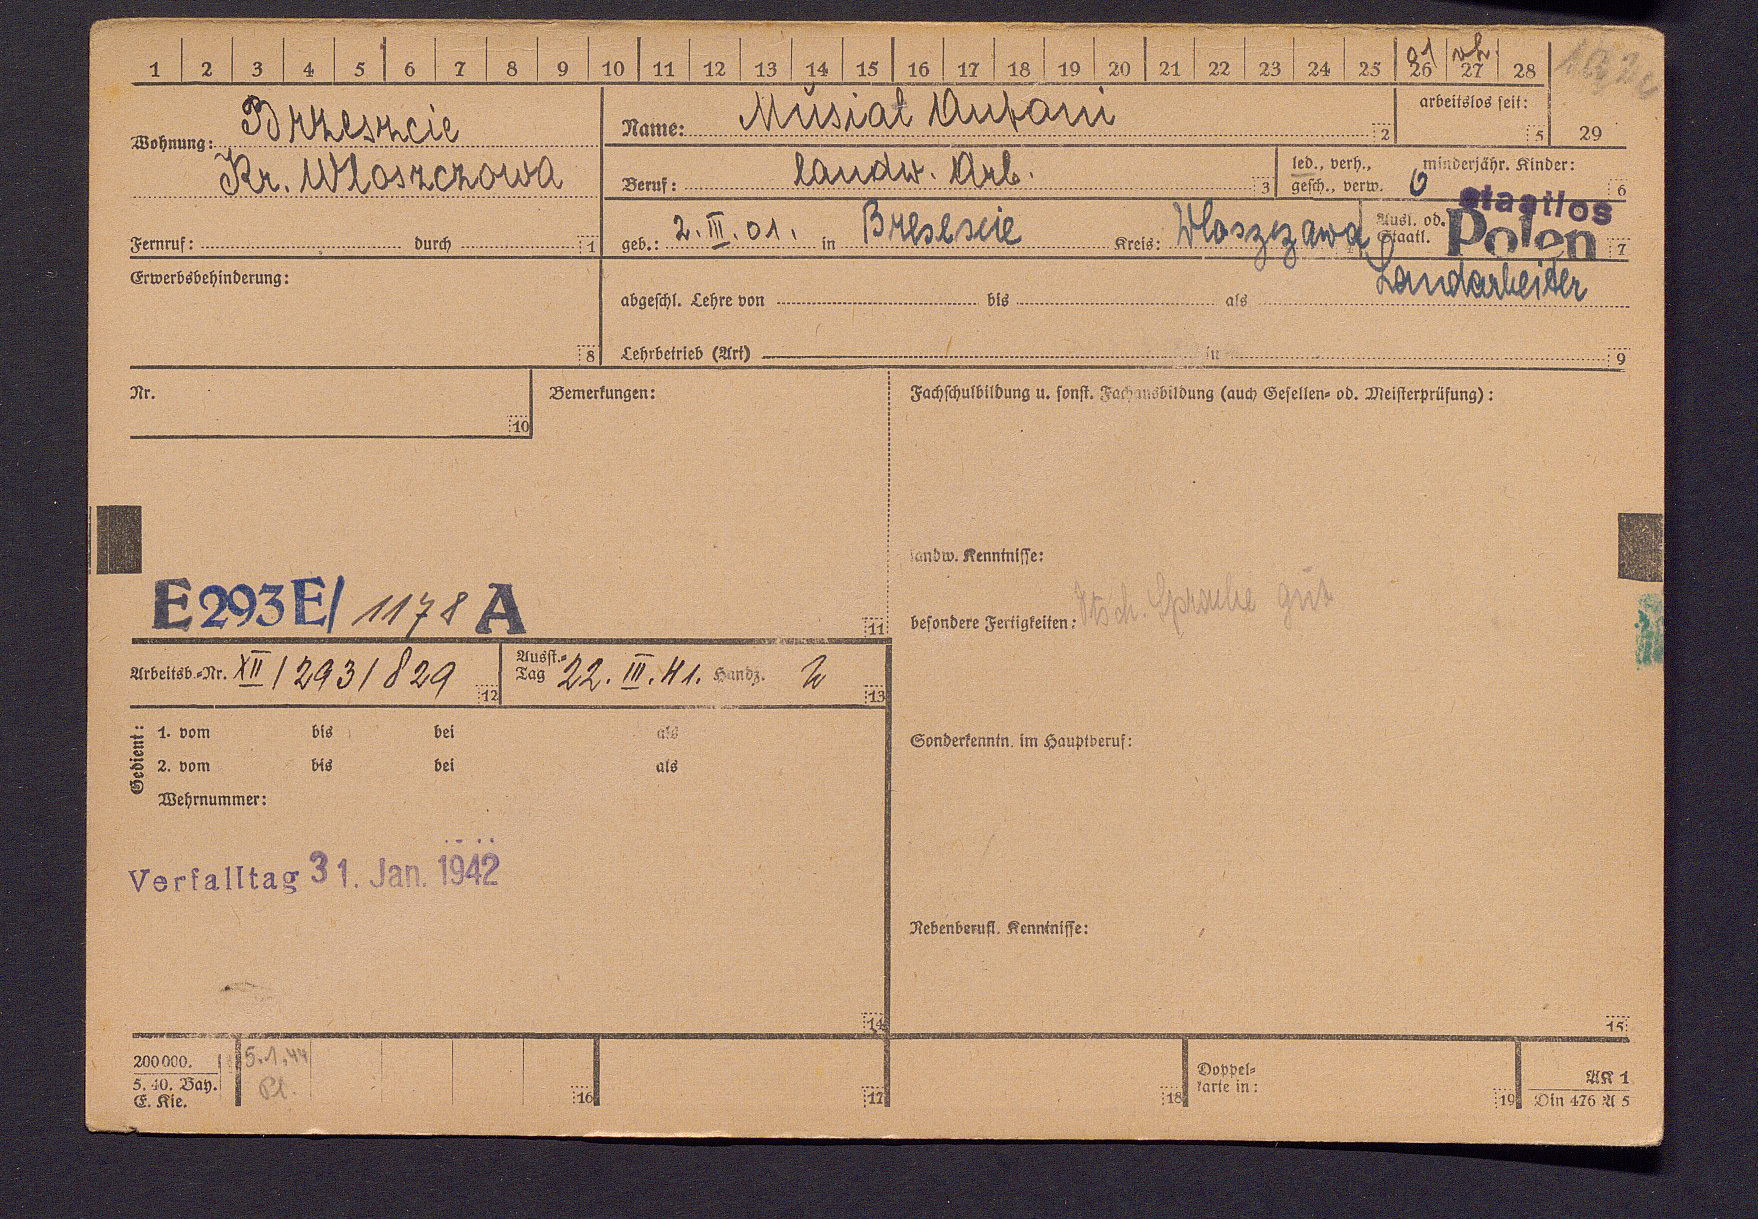 1 2 3 4 5 6 7 8 9 10 11 12 13 14 15 16 17 18 19 20 21 22 23 24 25 26 27 28
01 vh.
Wohnung: Brzeszcie
Kr. Wloszczowa
Fernruf: durch 1
Name: Musial Antoni 2
arbeitslos seit: 5 29
Beruf: landw. Arb. 3
led., verh., gesch., verw.
minderjähr. Kinder: 0 6
geb.: 2. III. 01. in Bresescie Kreis: Wloszczawa 4
Ausl. od. Staatl. staatlos Polen 7
Landarbeiter
Erwerbsbehinderung: 8
abgeschl. Lehre von bis als
Lehrbetrieb (Art) in 9
Nr. 10
Bemerkungen:
Fachschulbildung u. sonst. Fachausbildung (auch Gesellen- od. Meisterprüfung):
landw. Kenntnisse:
E 293 E/ 1178 A 11
besondere Fertigkeiten: Dtsch. Sprache gut
Arbeitsb.-Nr. XII/293/829 12
Ausst.-Tag 22. III. 41. Handz. 13
Gedient:
1. vom bis bei als
2. vom bis bei als
Wehrnummer:
Sonderkenntn. im Hauptberuf:
Verfalltag 31. Jan. 1942
Nebenberufl. Kenntnisse:
14 15
200000.
5. 40. Bay.
E. Kie.
5.1.44
Pl.
16 17 18
Doppel-
karte in: 19
AK 1
Din 476 A 5